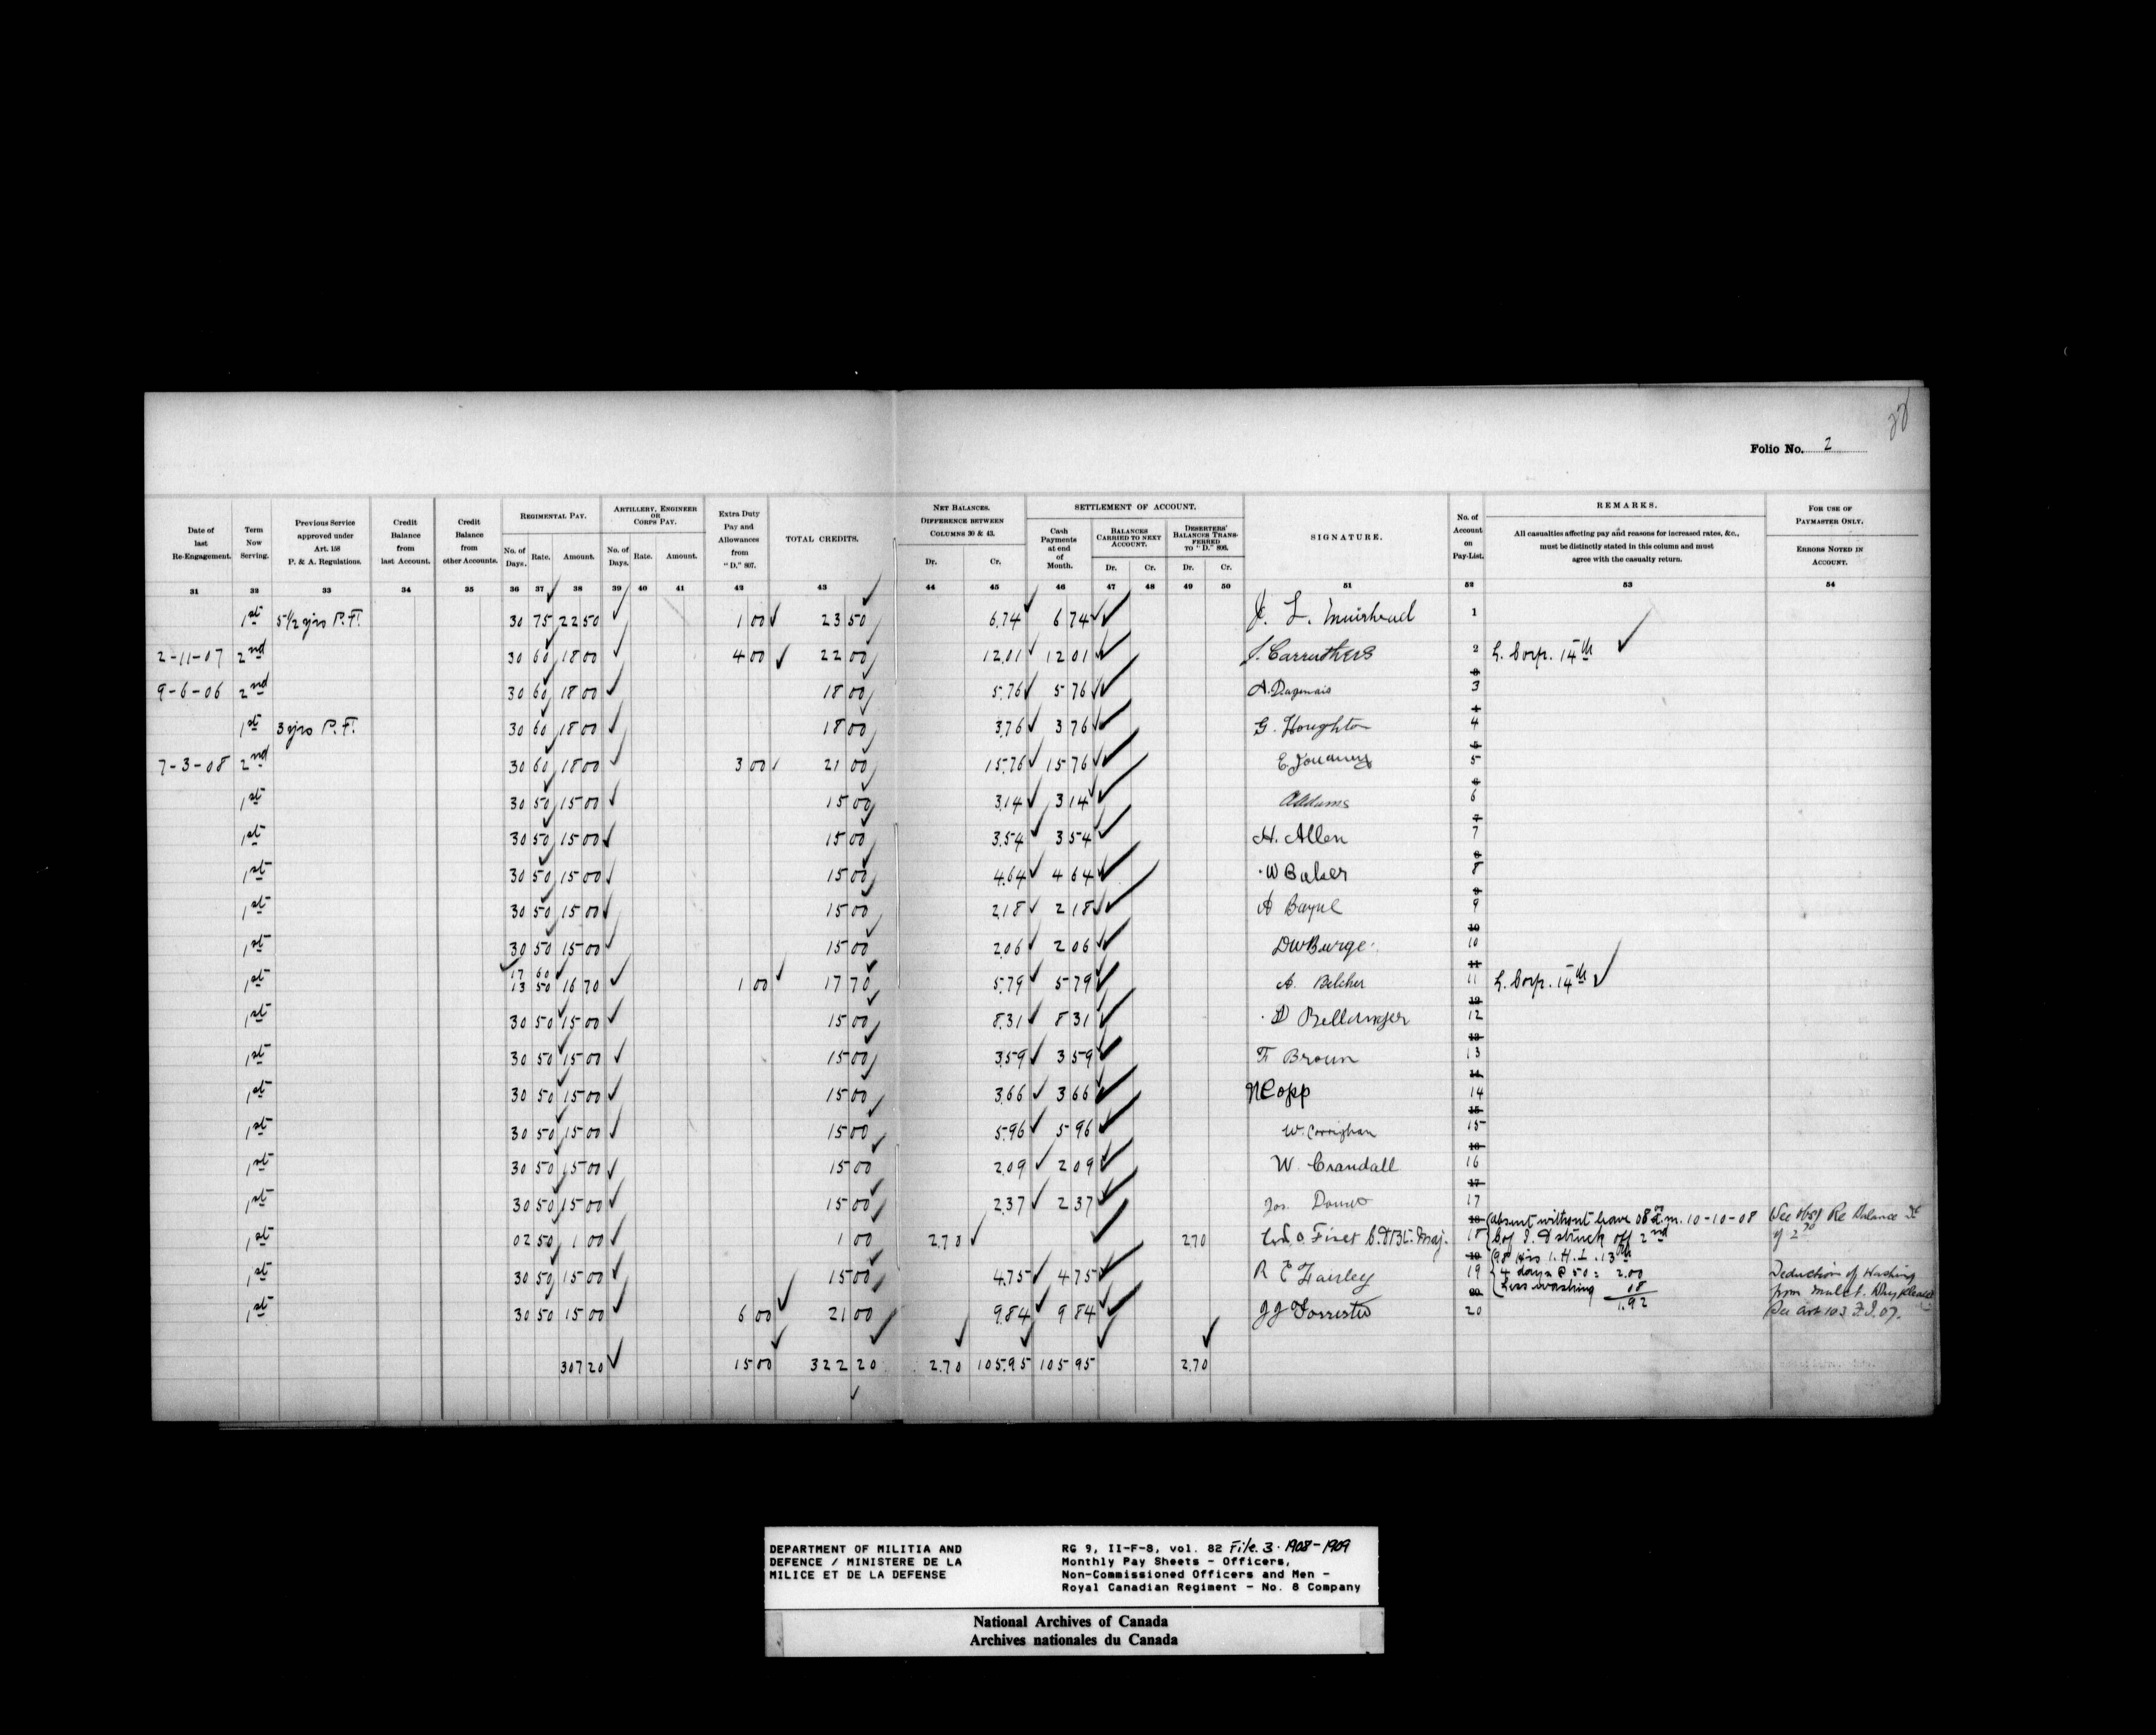 22
Folio No. 2
Date of last Re-Engagement. Term Now Serving. Previous Service approved under Art. 158 P. & A. Regulations. Credit Balance from last Account. Credit Balance from other Accounts. REGIMENTAL PAY. No. of Days. Rate. Amount. ARTILLERY, ENGINEER OR CORPS PAY. No. of Days. Rate. Amount. Extra Duty Pay and Allowances from "D." 807. TOTAL CREDITS. NET BALANCES. DIFFERENCE BETWEEN COLUMNS 30 & 43. Dr. Cr. SETTLEMENT OF ACCOUNT. Cash Payments at end of Month. BALANCES CARRIED TO NEXT ACCOUNT. Dr. Cr. DESERTERS' BALANCES TRANSFERRED TO "D." 806. Dr. Cr. SIGNATURE. No. of Account on Pay-List. REMARKS. All casualties affecting pay and reasons for increased rates, &c., must be distinctly stated in this column and must agree with the casualty return. FOR USE OF PAYMASTER ONLY. ERRORS NOTED IN ACCOUNT.
31 32 33 34 35 36 37 38 39 40 41 42 43 44 45 46 47 48 49 50 51 52 53 54
1st 5½ yrs P.F. 30 75 22 50 1 00 23 50 6.74 6 74 J. L. Muirhead 1
2-11-07 2nd 30 60 18 00 4 00 22 00 12.01 12 01 J. Carruthers 2 L. Corp. 14th
9-6-06 2nd 30 60 18 00 18 00 5.76 5 76 A. Dagenais 3
1st 3 yrs P.F. 30 60 18 00 18 00 3.76 3 76 G. Houghton 4
7-3-08 2nd 30 60 18 00 3 00 21 00 15.76 15 76 E. 5
1st 30 50 15 00 15 00 3.14 3 14 Addams 6
1st 30 50 15 00 15 00 3.54 3 54 H. Allen 7
1st 30 50 15 00 15 00 4.64 4 64 W Baker 8
1st 30 50 15 00 15 00 2.18 2 18 A Bayne 9
1st 30 50 15 00 15 00 2.06 2 06 DW Burge 10
1st 17 60 13 50 16 70 1 00 17 70 5.79 5 79 A. Belcher 11 L. Corp. 14th
1st 30 50 15 00 15 00 8.31 8 31 D Bellanger 12
1st 30 50 15 00 15 00 3.59 3 59 F Brown 13
1st 30 50 15 00 15 00 3.66 3 66 N Copp 14
1st 30 50 15 00 15 00 5.96 5 96 W. Corrighan 15
1st 30 50 15 00 15 00 2.09 2 09 W. Crandall 16
1st 30 50 15 00 15 00 2.37 2 37 Jos. 17
1st 02 50 1 00 1 00 2.70 2.70 Finet Maj. 18 absent without leave 08 00 a.m. 10-10-08 C. of I. & struck off 2nd See Re Balance Dr of 2 70
1st 30 50 15 00 15 00 4.75 4 75 R E Fairley 19 98 Hrs I.H.L. 13th 4 days @ 50 = 2.00 Less washing 08 1.92 Deduction of Washing from mulct.
1st 30 50 15 00 6 00 21 00 9.84 9 84 JJ Forrester 20 See Art 103 F.I. 07.
307 20 15 00 322 20 2.70 105.95 105 95 2.70
DEPARTMENT OF MILITIA AND
DEFENCE / MINISTERE DE LA
MILICE ET DE LA DEFENSE
RG 9, II-F-8, vol. 82 File. 3. 1908-1909
Monthly Pay Sheets - Officers,
Non-Commissioned Officers and Men -
Royal Canadian Regiment - No. 8 Company
National Archives of Canada
Archives nationales du Canada